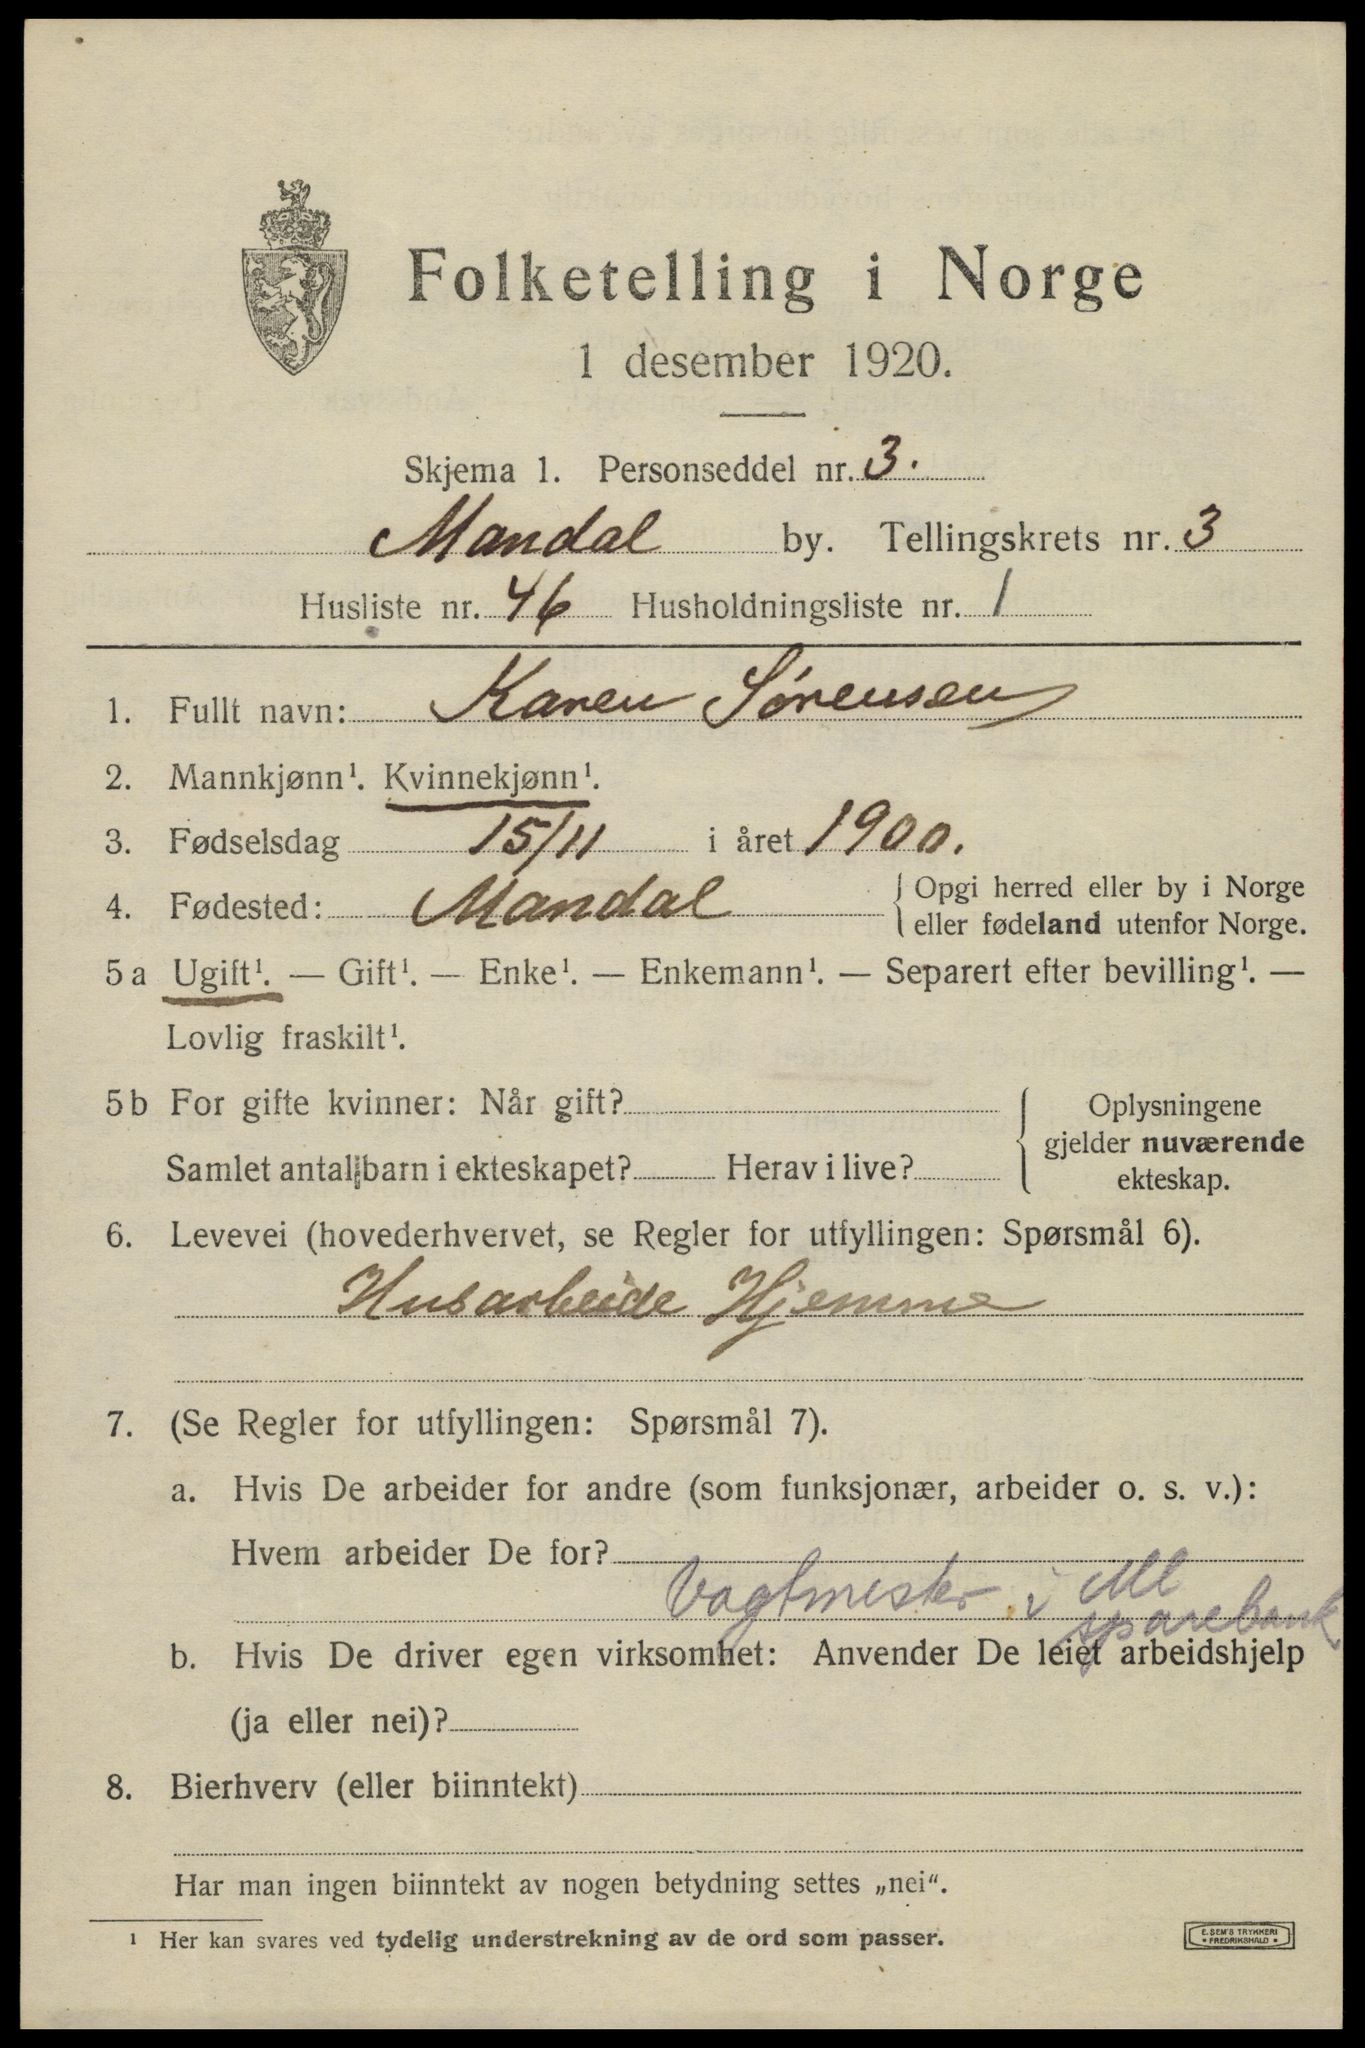 Folketelling i Norge
1 desember 1920.
Skjema 1. Personseddel nr. 3.
Mandal by. Tellingskrets nr. 3
Husliste nr. 46 Husholdningsliste nr. 1
1. Fullt navn: Karen Sørensen
2. Mannkjønn¹. Kvinnekjønn¹.
3. Fødselsdag 15/11 i året 1900.
4. Fødested: Mandal { Opgi herred eller by i Norge
eller fødeland utenfor Norge.
5a Ugift¹. — Gift¹. — Enke¹. — Enkemann¹. — Separert efter bevilling¹. —
Lovlig fraskilt¹.
5b For gifte kvinner: Når gift?
Samlet antal barn i ekteskapet? Herav i live?
{ Oplysningene
gjelder nuværende
ekteskap.
6. Levevei (hovederhvervet, se Regler for utfyllingen: Spørsmål 6).
Husarbeide Hjemme
7. (Se Regler for utfyllingen: Spørsmål 7).
a. Hvis De arbeider for andre (som funksjonær, arbeider o. s. v.):
Hvem arbeider De for?
Vagtmester i Ml
sparebank
b. Hvis De driver egen virksomhet: Anvender De leiet arbeidshjelp
(ja eller nei)?
8. Bierhverv (eller biinntekt)
Har man ingen biinntekt av nogen betydning settes „nei“.
¹ Her kan svares ved tydelig understrekning av de ord som passer.
E. SEM'S TRYKKERI
• FREDRIKSHALD •